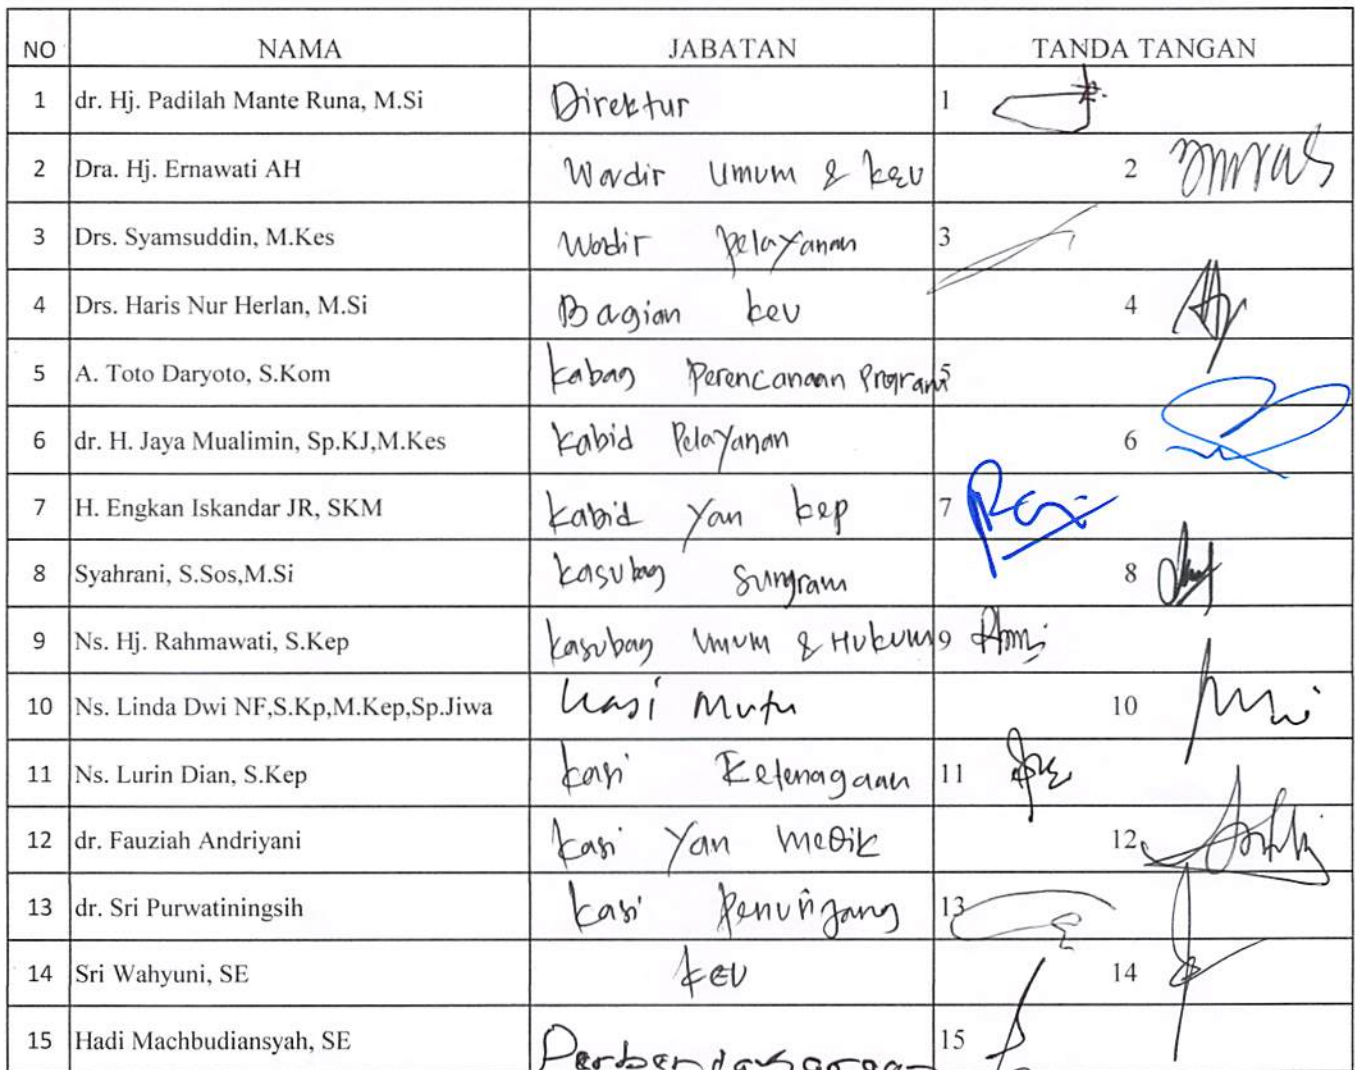 NO NAMA JABATAN TANDA TANGAN
1 dr. Hj. Padilah Mante Runa, M.Si Direktur 1
2 Dra. Hj. Ernawati AH Wadir Umum & keu 2
3 Drs. Syamsuddin, M.Kes Wadir Pelayanan 3
4 Drs. Haris Nur Herlan, M.Si Bagian keu 4
5 A. Toto Daryoto, S.Kom kabag Perencanaan Program 5
6 dr. H. Jaya Mualimin, Sp.KJ,M.Kes kabid Pelayanan 6
7 H. Engkan Iskandar JR, SKM kabid Yan kep 7
8 Syahrani, S.Sos,M.Si kasubag sungram 8
9 Ns. Hj. Rahmawati, S.Kep kasubag Umum & Hukum 9
10 Ns. Linda Dwi NF,S.Kp,M.Kep,Sp.Jiwa Kasi Mutu 10
11 Ns. Lurin Dian, S.Kep kasi Ketenagaan 11
12 dr. Fauziah Andriyani kasi Yan medik 12
13 dr. Sri Purwatiningsih kasi Penunjang 13
14 Sri Wahyuni, SE keu 14
15 Hadi Machbudiansyah, SE 15